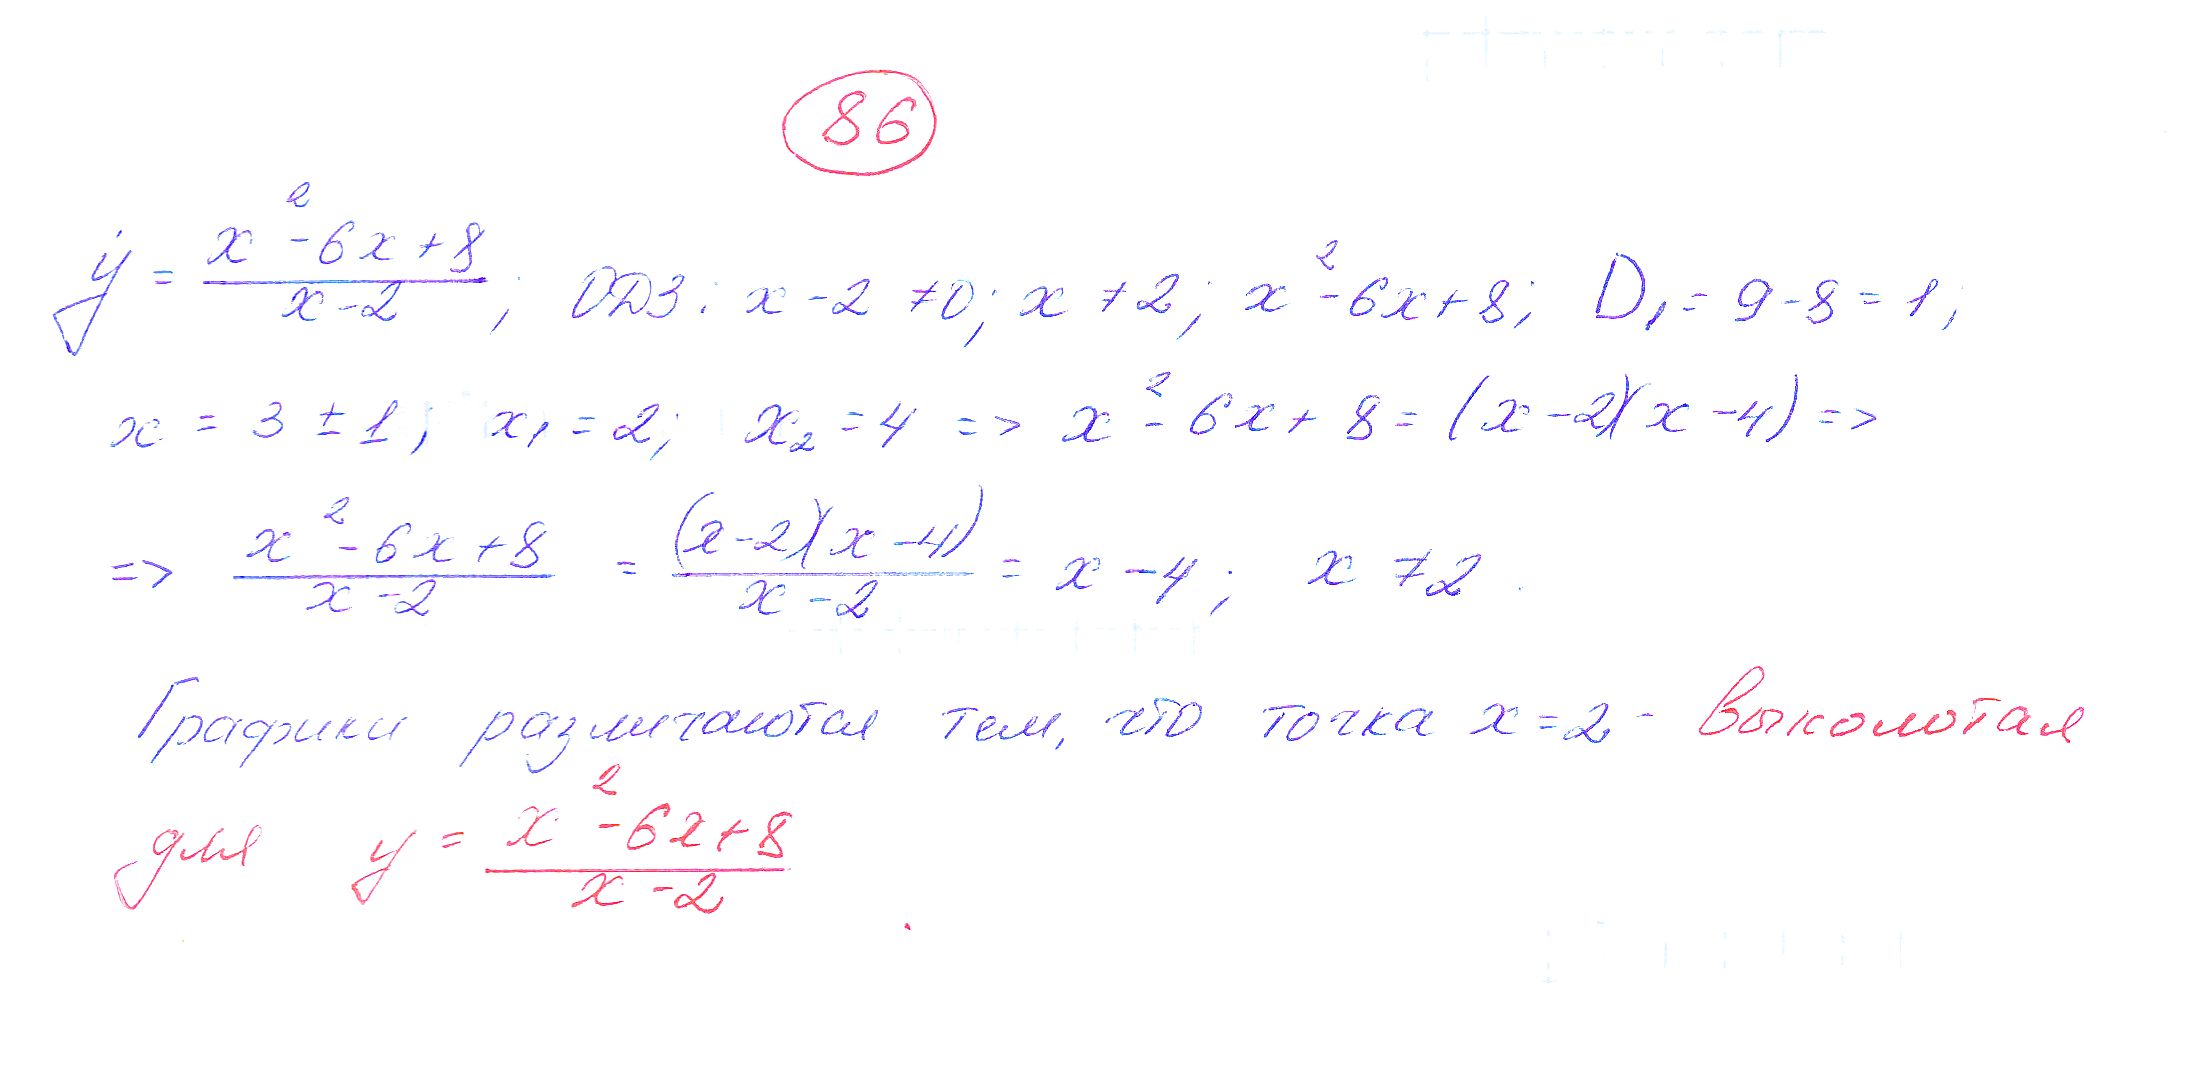 86
y = (x² - 6x + 8)/(x - 2); ОДЗ: x - 2 ≠ 0; x ≠ 2; x² - 6x + 8; D₁ = 9 - 8 = 1;
x = 3 ± 1; x₁ = 2; x₂ = 4 => x² - 6x + 8 = (x - 2)(x - 4) =>
=> (x² - 6x + 8)/(x - 2) = ((x - 2)(x - 4))/(x - 2) = x - 4; x ≠ 2.
Графики различаются тем, что точка x = 2 - выколотая
для y = (x² - 6x + 8)/(x - 2).